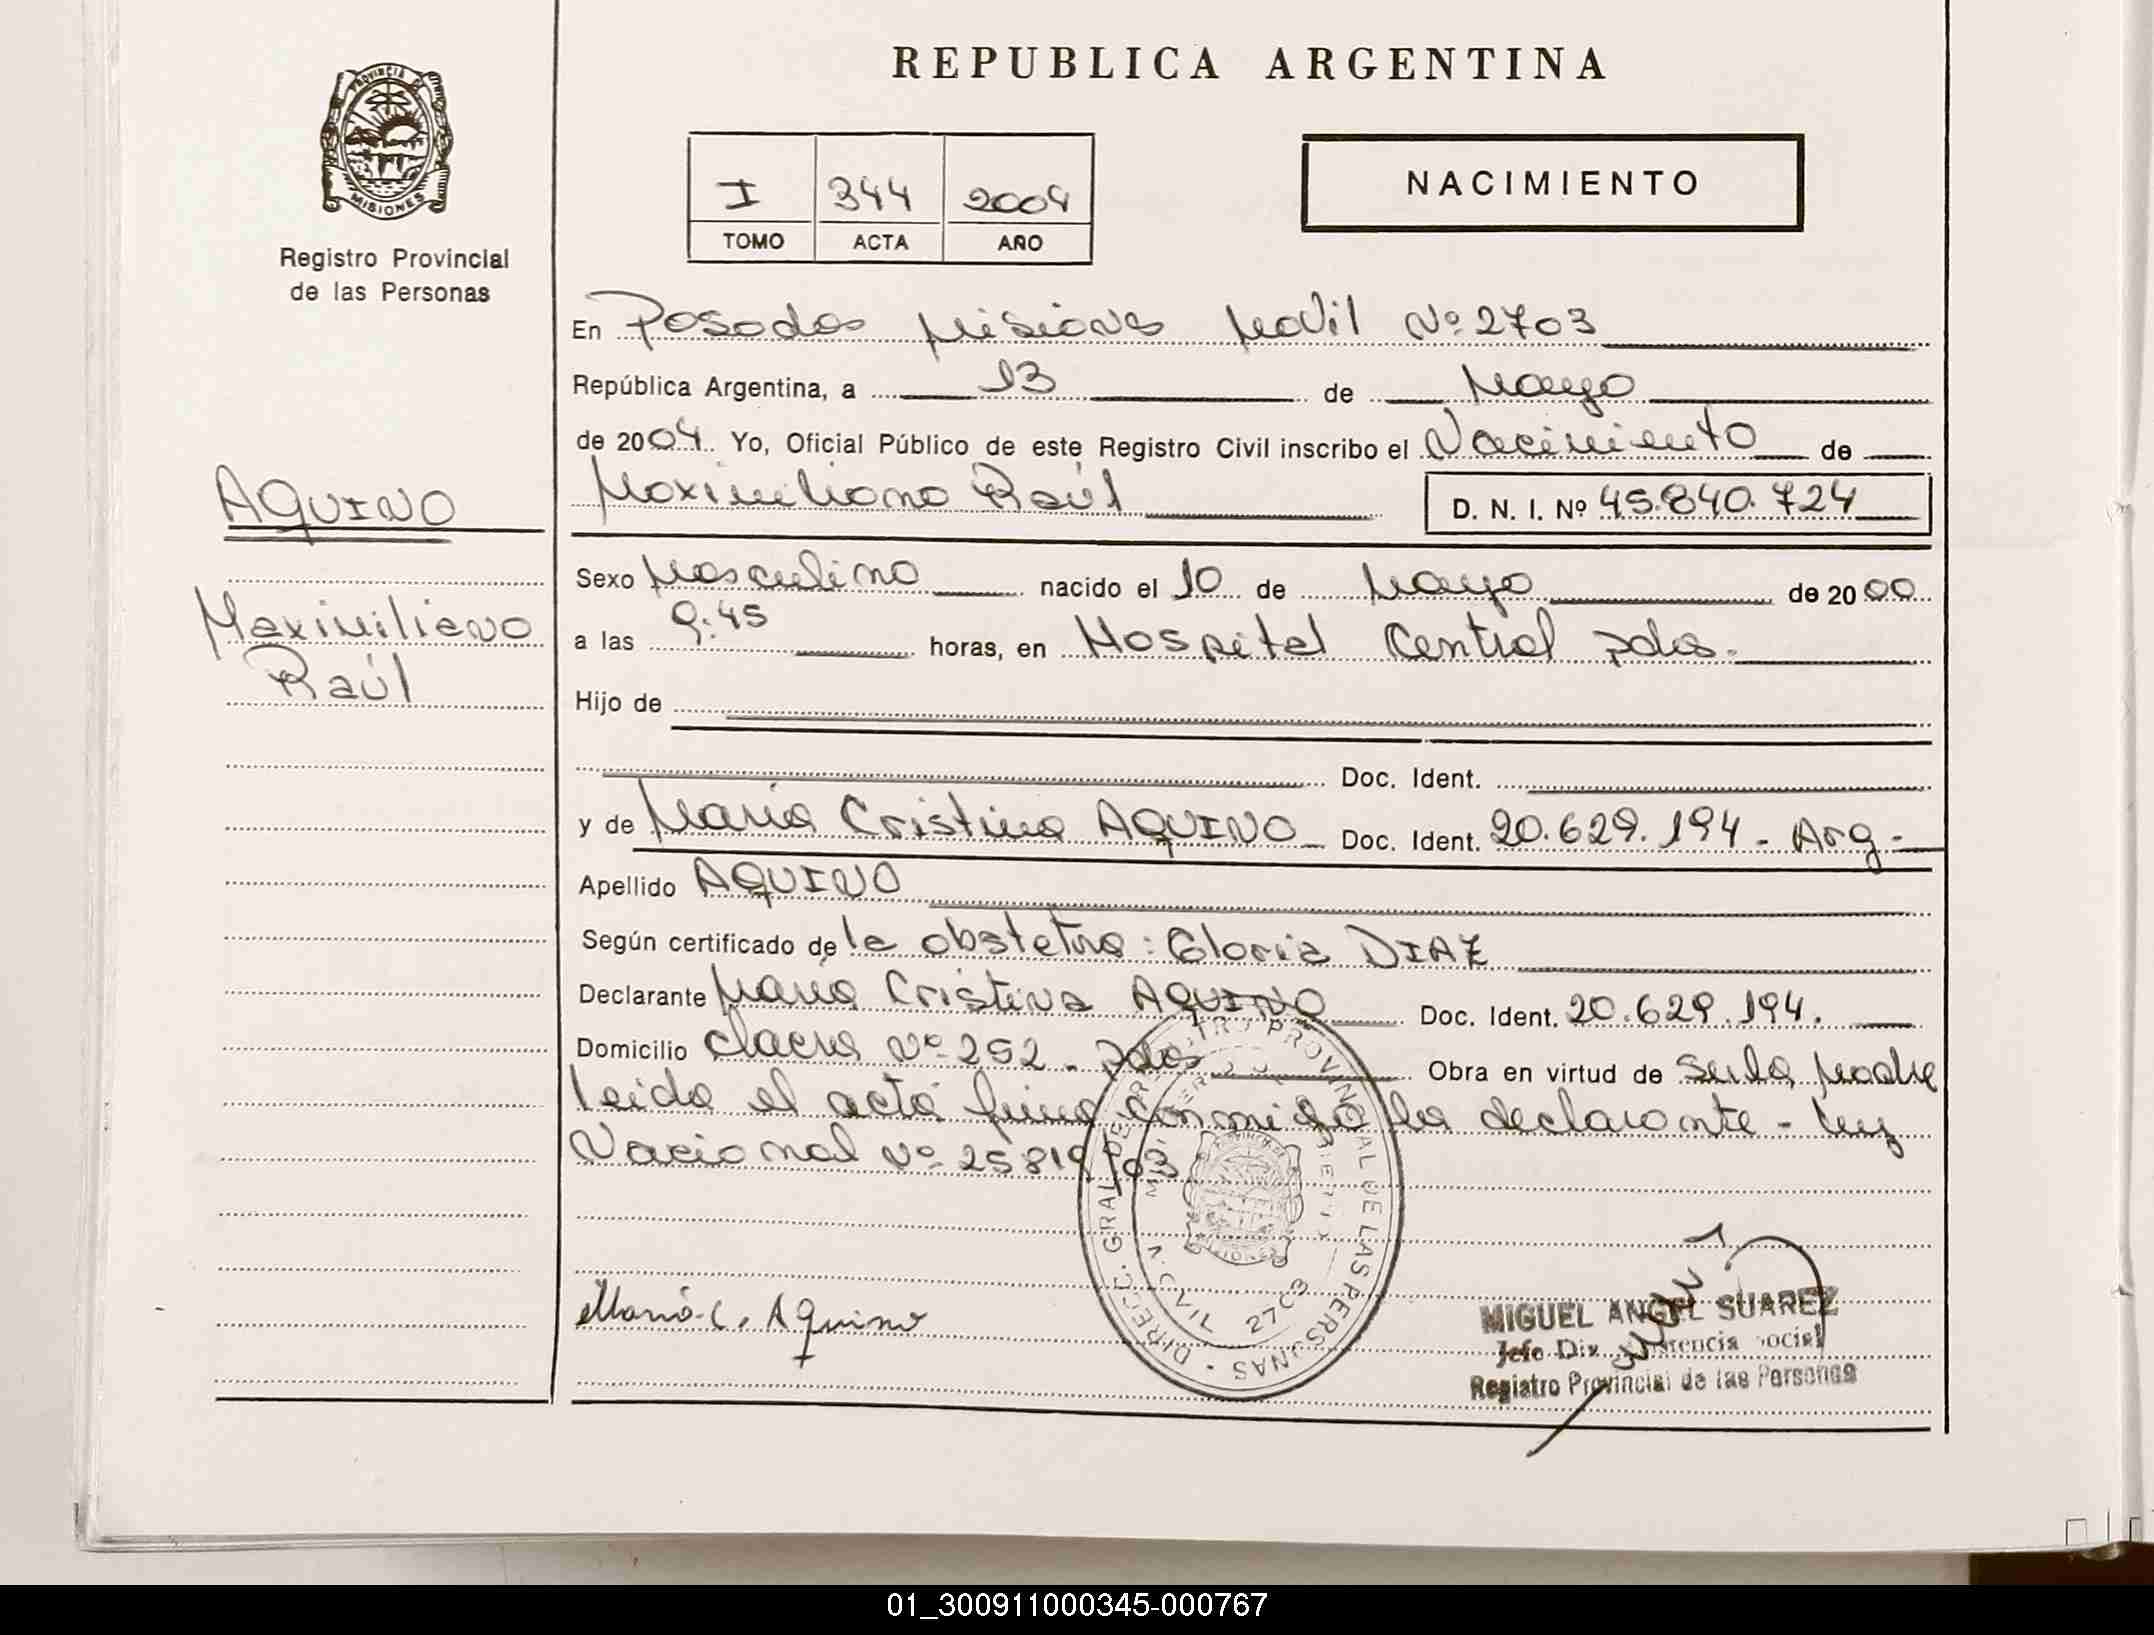 REPUBLICA ARGENTINA
PROVINCIA DE
MISIONES
Registro Provincial
de las Personas
I 344 2004
TOMO ACTA AÑO
NACIMIENTO
En Posadas Misiones Movil Nº 2703
República Argentina, a 13 de Mayo
de 2004 Yo, Oficial Público de este Registro Civil inscribo el Nacimiento de
Maximiliano Raúl D. N. I. Nº 45.840.724
AQUINO
Maximiliano
Raúl
Sexo Masculino nacido el 10 de Mayo de 2000
a las 9:45 horas, en Hospital Central pdas.
Hijo de
Doc. Ident.
y de María Cristina AQUINO Doc. Ident. 20.629.194 - Arg -
Apellido AQUINO
Según certificado de la obstetra: Gloria DIAZ
Declarante María Cristina AQUINO Doc. Ident. 20.629.194.
Domicilio Chacra Nº 252 - pdas Obra en virtud de ser la Madre
leida el acta firma conmigo la declarante - Ley
Nacional Nº 25819/03
DIRECC. GRAL. DE REGISTRO PROVINCIAL DE LAS PERSONAS
CIVIL 2703
María C. Aquino
MIGUEL ANGEL SUAREZ
Jefe Div. Social
Registro Provincial de las Personas
01_300911000345-000767